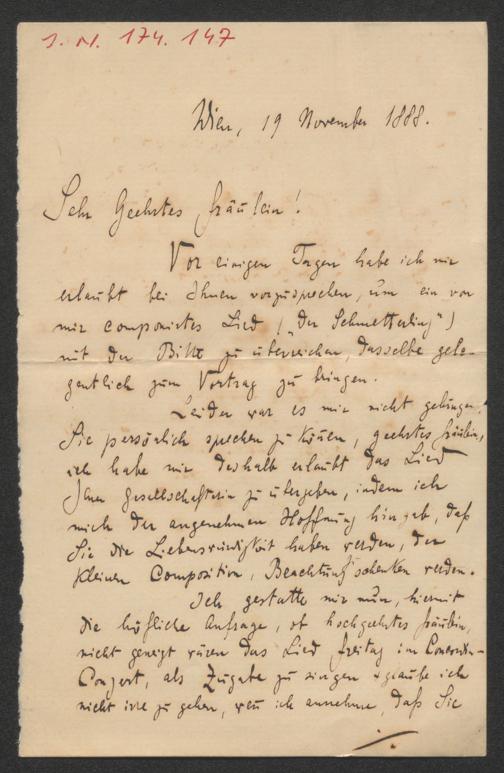 I. N. 174.147
Wien, 19 November 1888.
Sehr Geehrtes Fräulein!
Vor einigen Tagen habe ich mir
erlaubt bei Ihnen vorzusprechen, um ein von
mir componirtes Lied („Der Schmetterling“)
mit der Bitte zu überreichen, dasselbe gele-
gentlich zum Vortrag zu bringen.
Leider war es mir nicht gelungen,
Sie persönlich sprechen zu können, geehrtes Fräulein,
ich habe mir deshalb erlaubt das Lied
Ihrer Gesellschafterin zu übergeben, indem ich
mich der angenehmen Hoffnung hingab, daß
Sie die Liebenswürdigkeit haben werden, der
kleinen Composition, Beachtung schenken werden.
Ich gestatte mir nun, hiermit
die höfliche Anfrage, ob hochgeehrtes Fräulein,
nicht geneigt wären das Lied Freitag im
Conzert, als Zugabe zu singen & glaube ich
nicht irre zu gehen, wen ich annehme, daß Sie